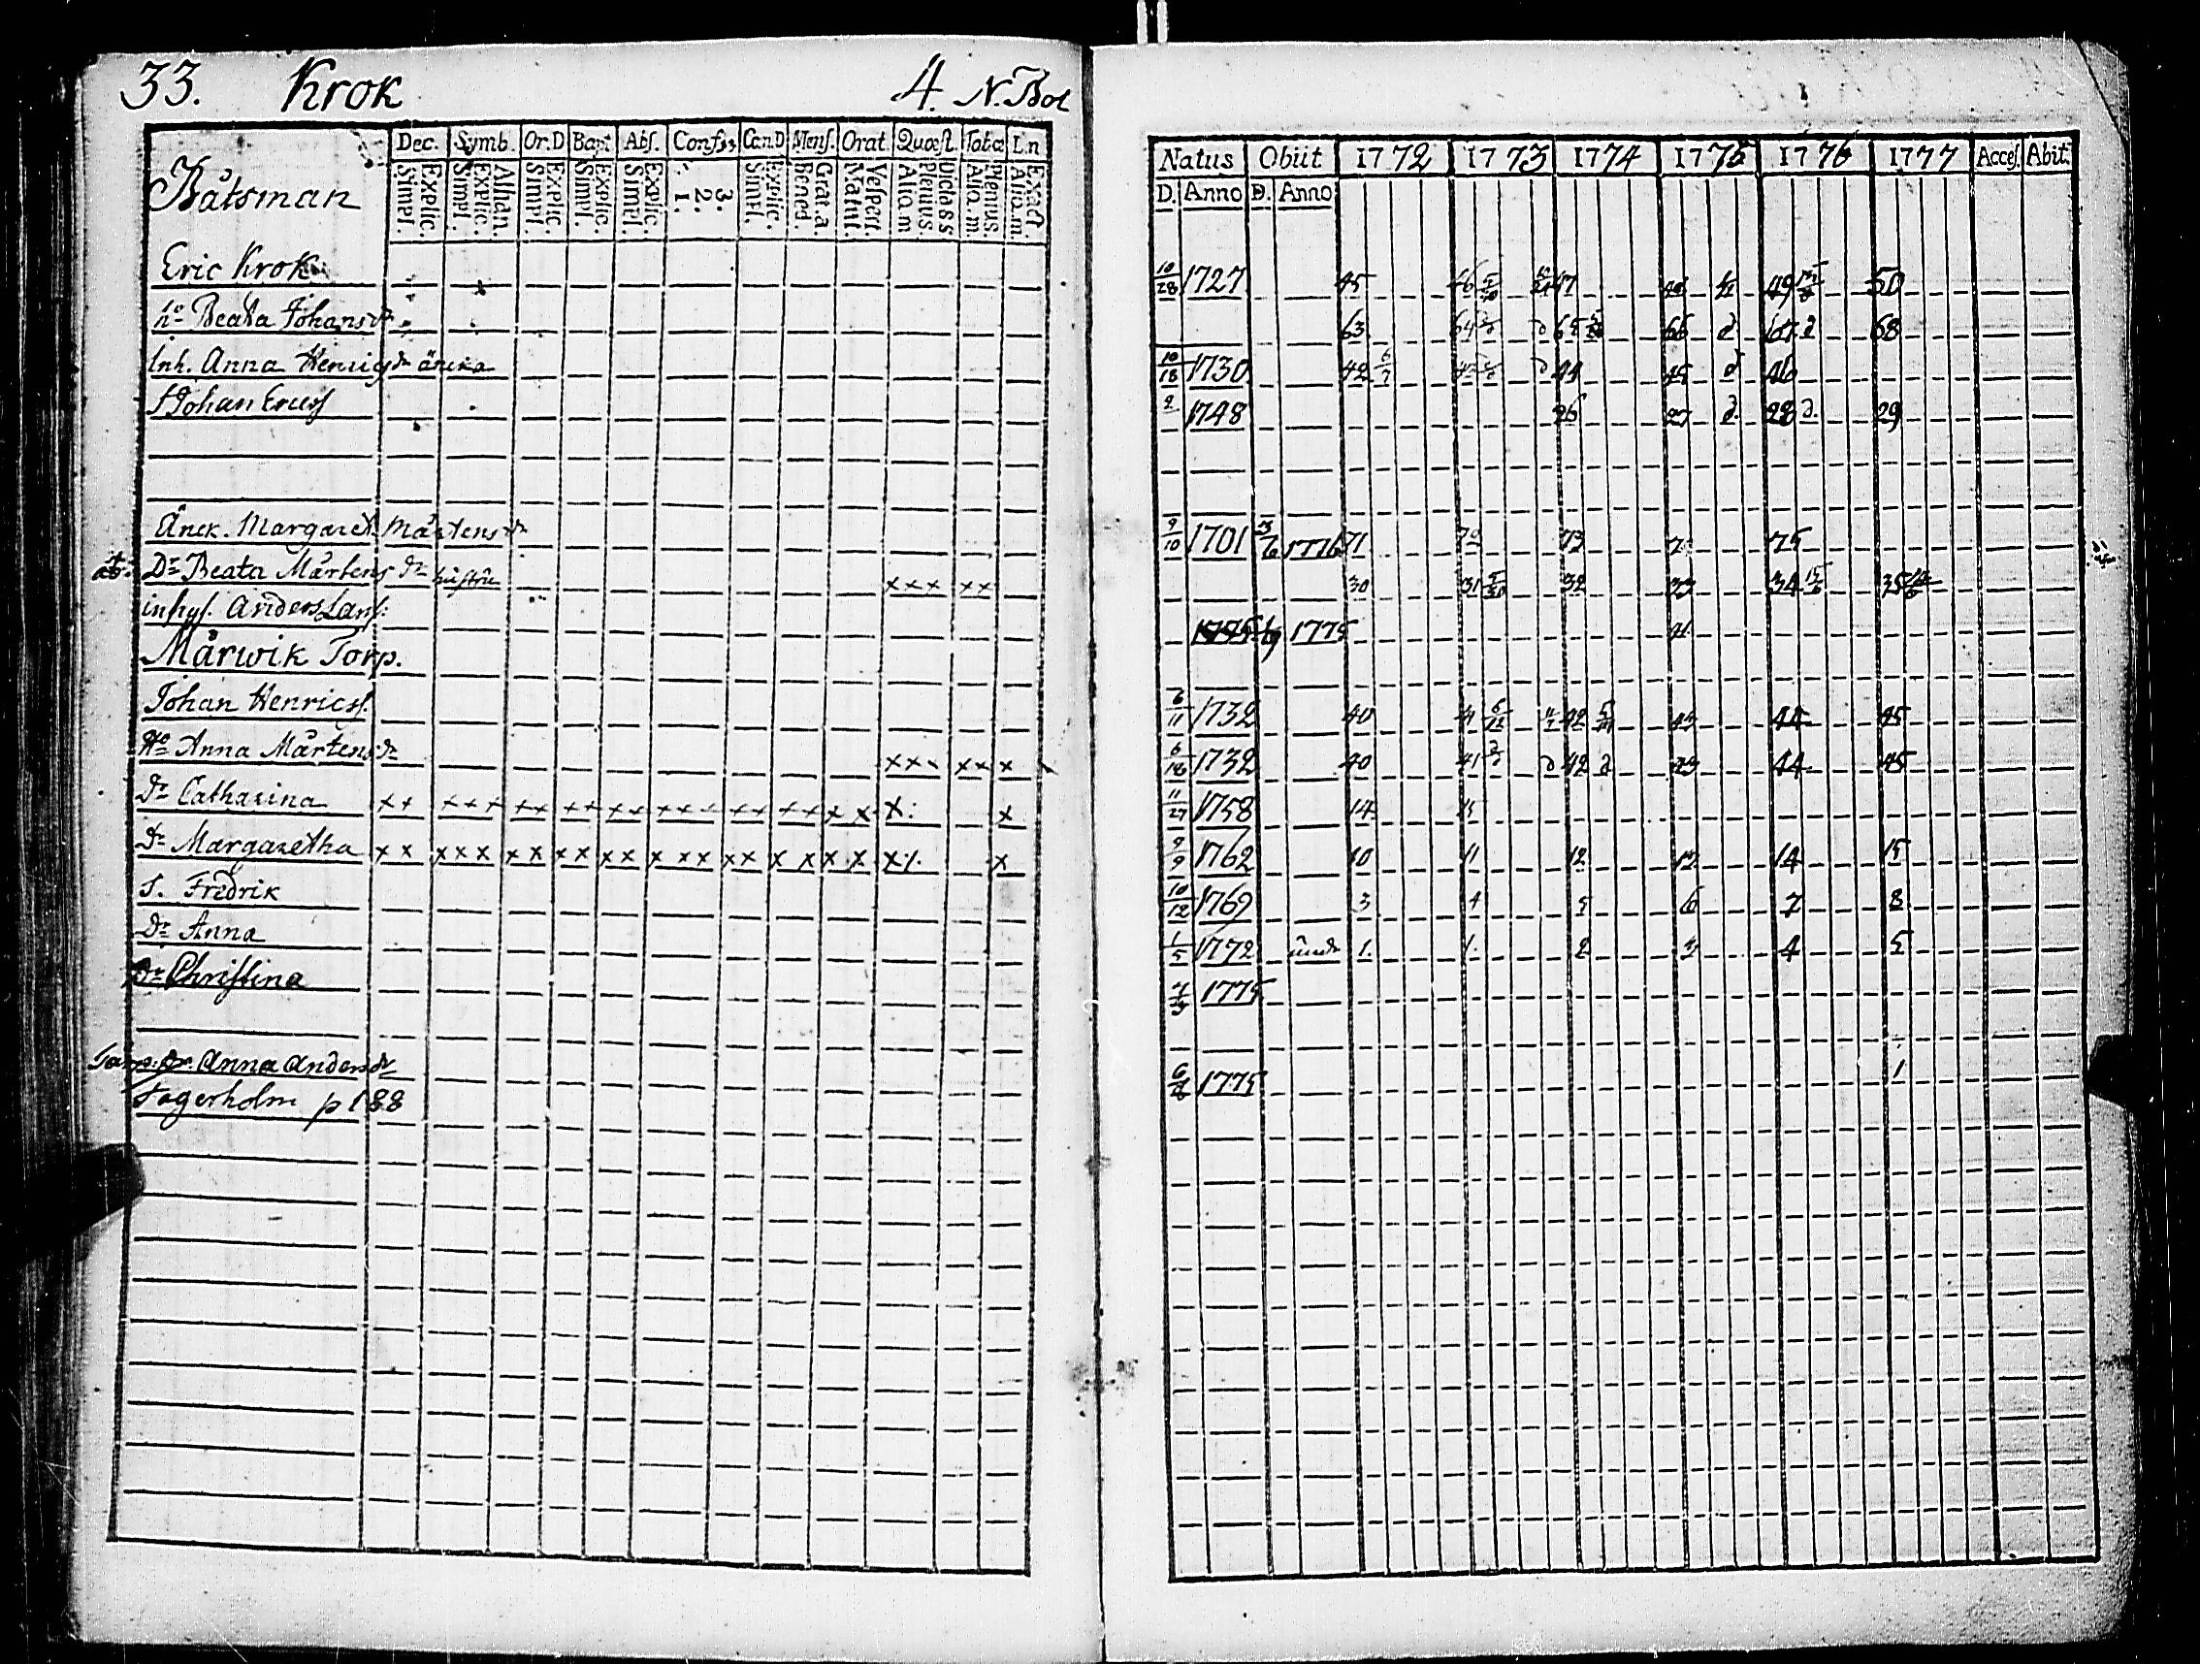 33. Krok 4. N. Bol
Dec. Symb. Or.D Bapt Abs. Confes Can.D Mens. Orat. Quæst. Tabæ Ln
Simpl. Explic. Simpl. Explic. Athan. Simpl. Explic. Simpl. Explic. Simpl. Explic. 1. 2. 3. Simpl. Explic. Bened. Grat.a. Matut. Vespert. Aliq.m Plenius. Dicta SS Aliq.m. Plenius. Aliq.m. Exact.
Båtsman
Eric Krok
ho Beata Johans dr
Inh. Anna Henrics dr änka
S Johan Ericss
Änck. Margaret. Mårtens dr
Dr Beata Mårtens dr hustru x x x x x
inhys. Anders Lars:
Mårwik Torp.
Johan Henricss.
Ho Anna Mårtens dr x x x x x x
Dr Catharina x x x x x x x x x x x x x x x x x x x x x x: x
Dr Margaretha x x x x x x x x x x x x x x x x x x x x x x x
S. Fredrik
Dr Anna
Dr Christina
Anna Anders dr
Fagerholm p 188
Natus Obiit 1772 1773 1774 1775 1776 1777 Acces. Abit.
D. Anno D. Anno
10/28 1727 45 46 47 49 50
63 64 65 66 67 68
10/18 1730 42 6/7 44 45 46
1748 26 27 28 29
9/10 1701 1776 71 72 73 75
30 31 32 33 34 35
1775
6/11 1732 40 41 42 44 45
6/18 1732 40 41 42 43 44 45
11/27 1758 14 15
9/9 1762 10 11 12 14 15
10/12 1769 3 4 5 6 7 8
1/5 1772 1. 1. 2 3 4 5
1775
1775 1